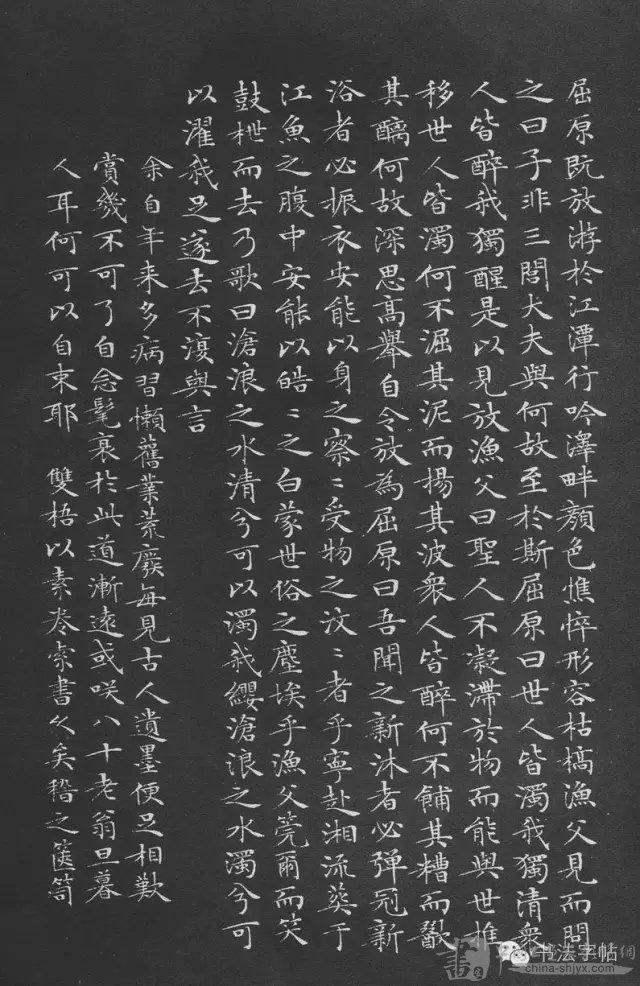 屈原既放游於江潭行吟澤畔顏色憔悴形容枯槁漁父見而問
之曰子非三閭大夫與何故至於斯屈原曰世人皆濁我獨清衆
人皆醉我獨醒是以見放漁父曰聖人不凝滯於物而能與世推
移世人皆濁何不淈其泥而揚其波衆人皆醉何不餔其糟而歠
其醨何故深思高舉自令放為屈原曰吾聞之新沐者必彈冠新
浴者必振衣安能以身之察〻受物之汶〻者乎寧赴湘流葬于
江魚之腹中安能以皓〻之白蒙世俗之塵埃乎漁父莞爾而笑
鼓枻而去乃歌曰滄浪之水清兮可以濁我纓滄浪之水濁兮可
以濯我足遂去不復與言
余自年来多病習懶舊業荒廢每見古人遺墨便足相歎
賞幾不可了自念髦衰於此道漸遠或咲八十老翁旦暮
人耳何可以自束耶 雙梧以素卷索書久矣稽之篋笥
书法字帖
china-shjyx.com